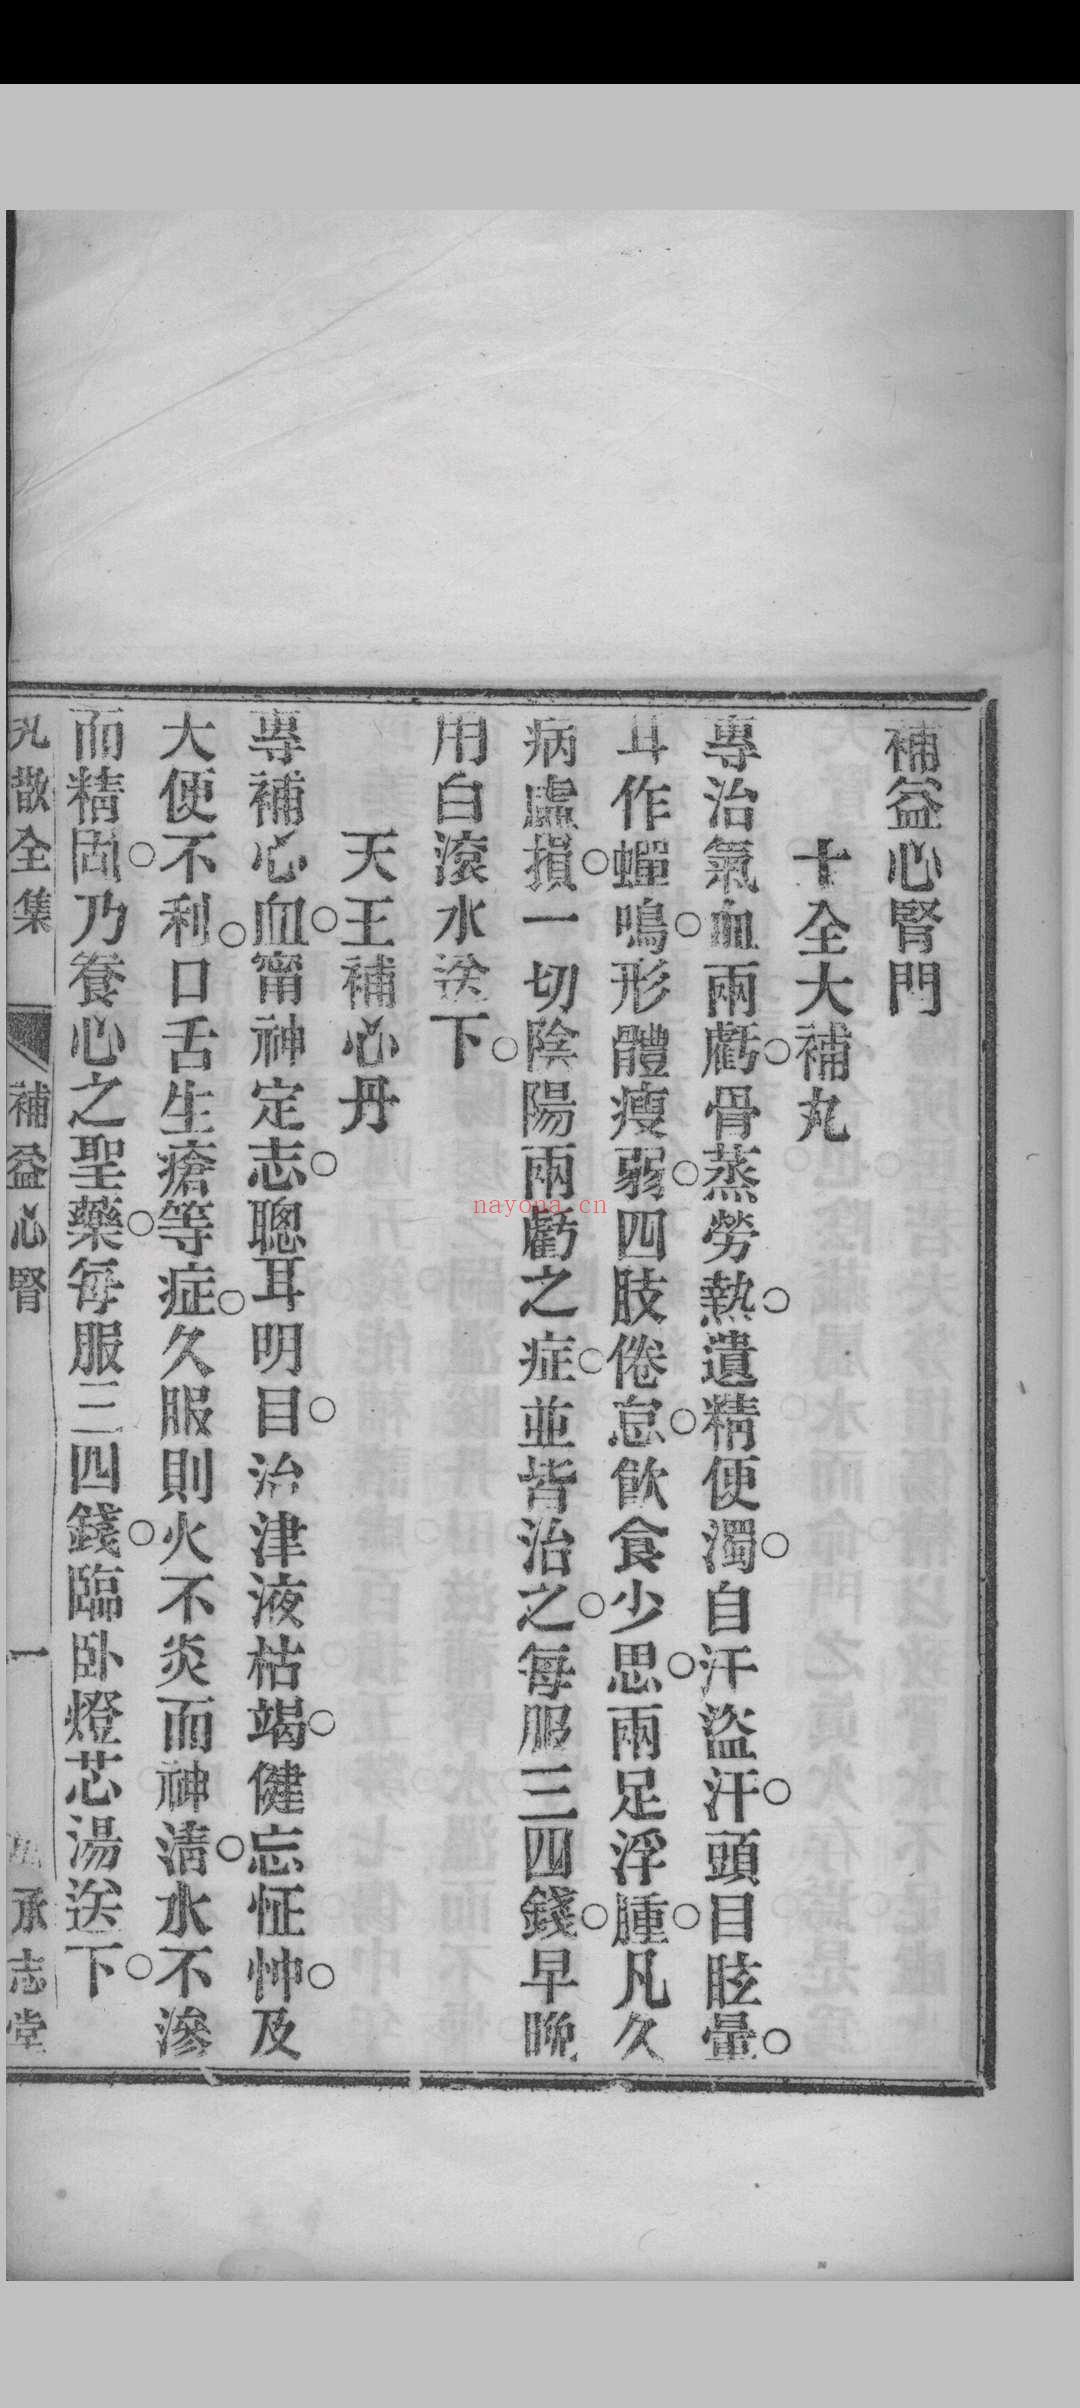 補益心腎門
十全大補丸
專治氣血兩虧○骨蒸勞熱○遺精便濁○自汗盜汗○頭目眩暈○
耳作蟬鳴○形體瘦弱○四肢倦怠○飲食少思○兩足浮腫○凡久
病虛損○一切陰陽兩虧之症○並皆治之○每服三四錢○早晚
用白滾水送下○
天王補心丹
專補心血○甯神定志○聰耳明目○治津液枯竭○健忘怔忡○及
大便不利○口舌生瘡等症○久服則火不炎而神清○水不滲
而精固○乃養心之聖藥○每服三四錢○臨卧燈芯湯送下○
丸散全集 補益心腎 一 承志堂
nayona.cn